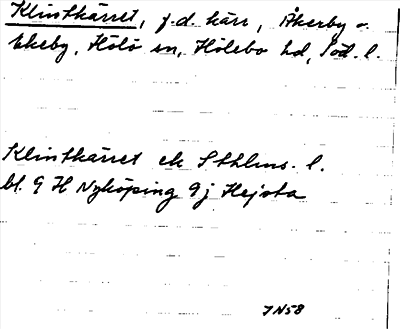 Klintkärret, f.d. kärr, Åkerby o.
Ekeby, Hölö sn, Hölebo hd, Söd. l.
Klintkärret ek Sthlms. l.
bl. 9 H Nyköping 9 j Hejsta
JN58